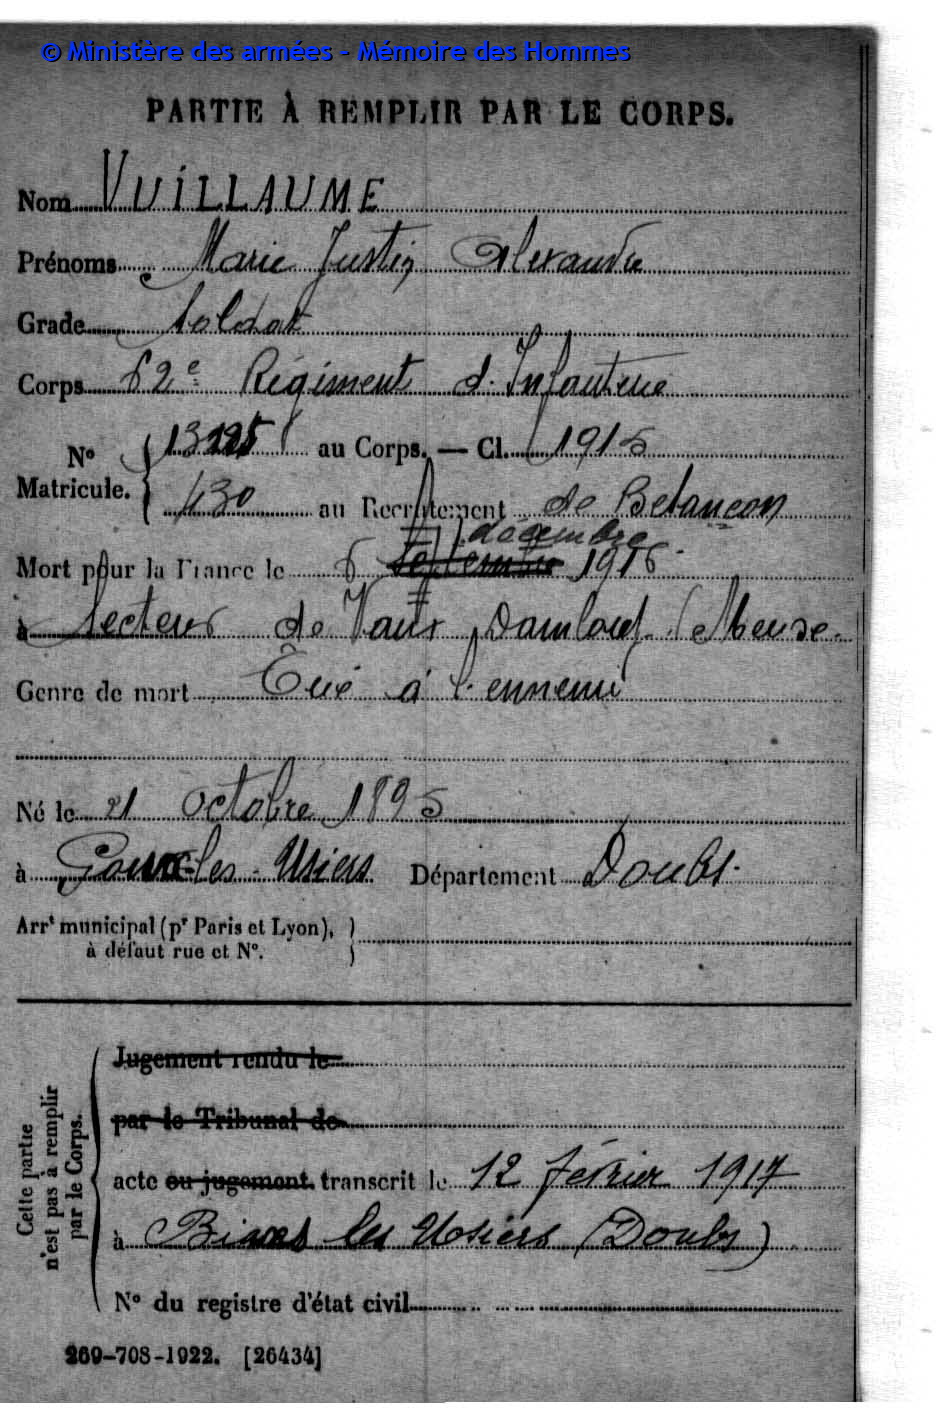 © Ministère des armées - Mémoire des Hommes
PARTIE À REMPLIR PAR LE CORPS.
Nom VUILLAUME
Prénoms Marie Justin Alexandre
Grade Soldat
Corps 62e Régiment d'Infanterie
No Matricule. 13195 au Corps. — Cl. 1915
430 au Recrutement de Besançon
décembre
Mort pour la France le 6 septembre 1916
à Secteur de Vaux Damloup (Meuse
Genre de mort Tué à l'ennemi
Né le 21 Octobre 1895
à les-Usiers Département Doubs
Arrt municipal (pr Paris et Lyon),
à défaut rue et No.
Cette partie
n'est pas à remplir
par le Corps.
Jugement rendu le
par le Tribunal de
acte ou jugement transcrit le 12 février 1917
à les Usiers (Doubs)
No du registre d'état civil
269-708-1922. [26434]